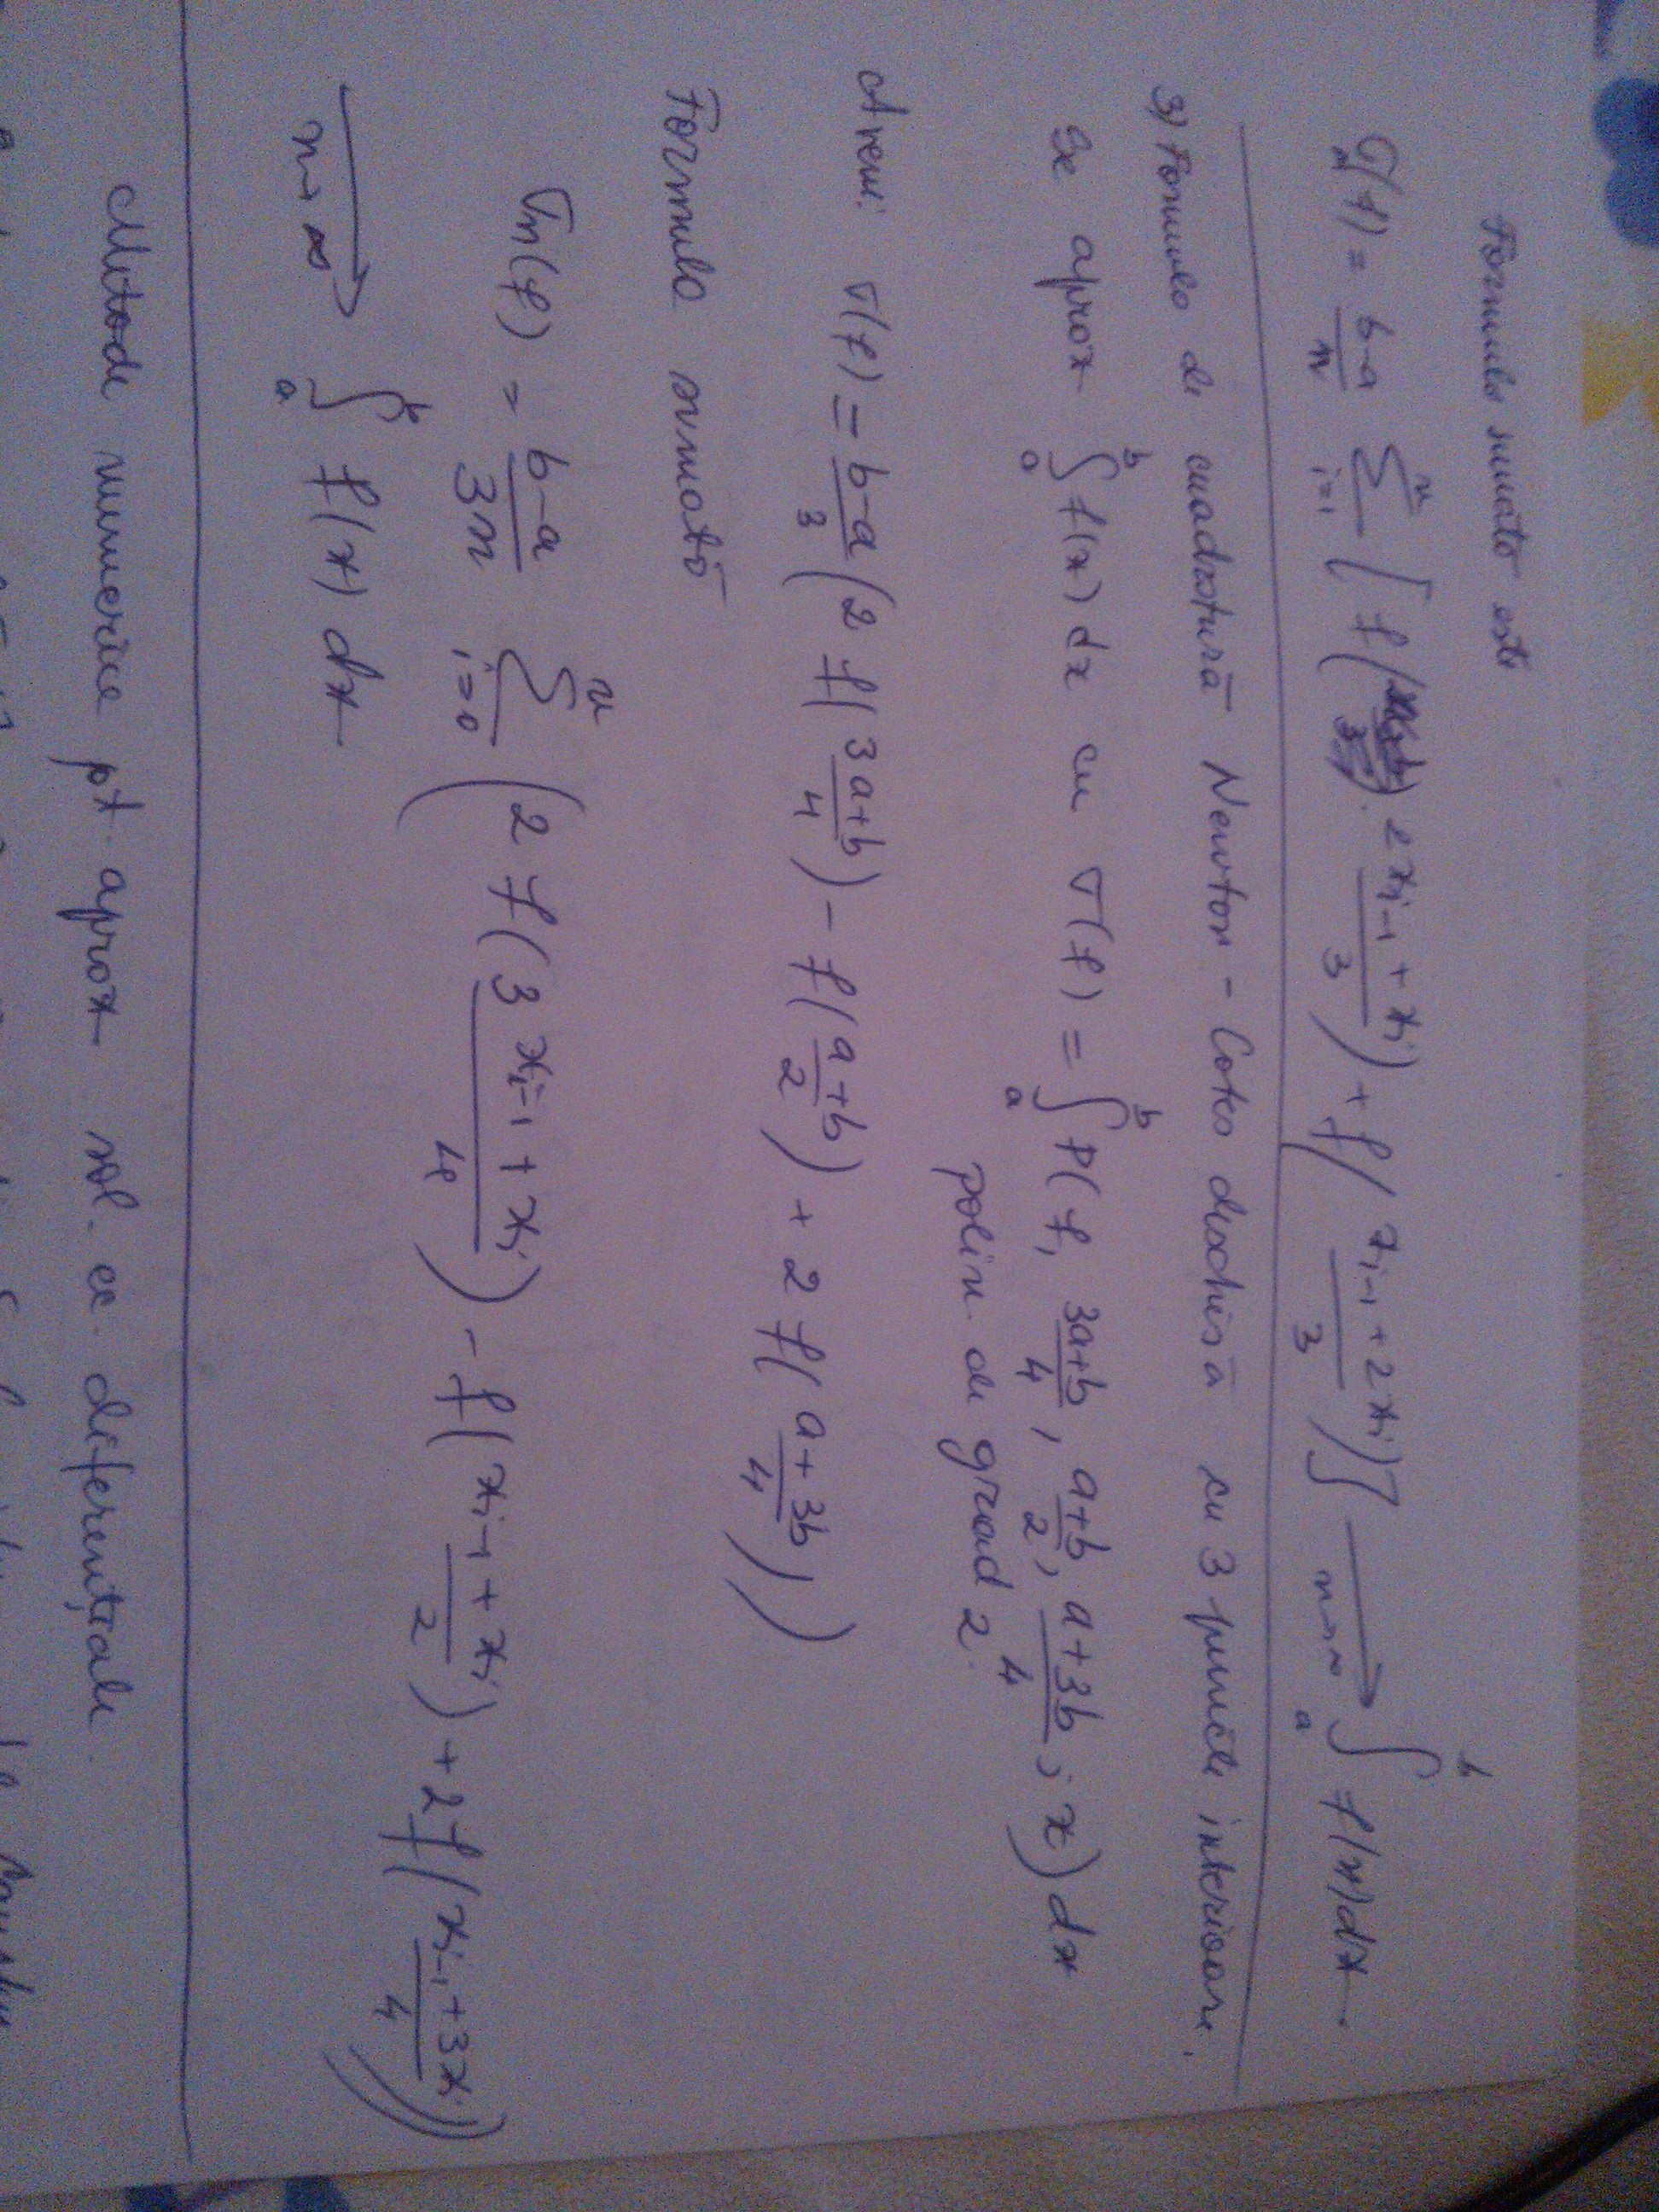 Formula sumată este
σₙ(f) = (b-a)/n ∑_{i=1}^{n} [f((2x_{i-1} + x_i)/3) + f((x_{i-1} + 2x_i)/3)] →_{n→∞} ∫_a^b f(x)dx
3) Formula de cuadratură Newton - Cotes deschisă cu 3 puncte interioare.
Se aprox ∫_a^b f(x)dx cu σ(f) = ∫_a^b P(f, (3a+b)/4, (a+b)/2, (a+3b)/4; x)dx
polin. de grad 2.
Avem: σ(f) = (b-a)/3 (2f((3a+b)/4) - f((a+b)/2) + 2f((a+3b)/4))
Formula sumată
σn(f) = (b-a)/3n ∑_{i=0}^{n} (2f((3x_{i-1} + x_i)/4) - f((x_{i-1} + x_i)/2) + 2f((x_{i-1} + 3x_i)/4))
→_{n→∞} ∫_a^b f(x)dx
Metode numerice pt aprox sol. ec. diferențiale.